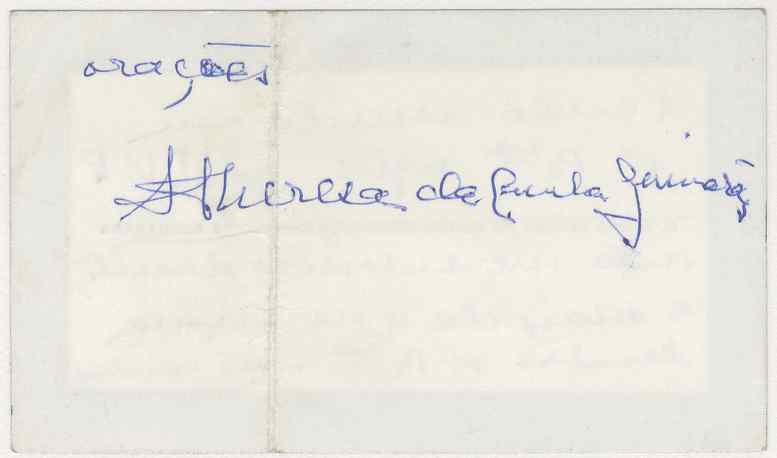 orações
Theresa da Cunha Guimarães